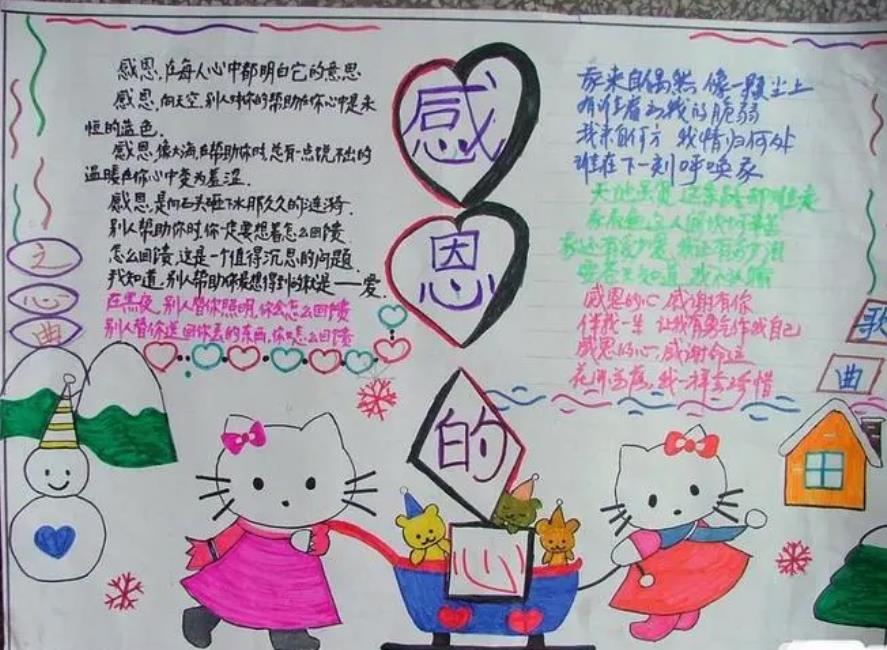 感恩,在每人心中都明白它的意思
感恩,向天空,别人对你的帮助在你心中是永
恒的蓝色.
感恩,像大海,在帮助你时,总有一点说不出的
温暖在你心中变为羞涩.
感恩,是向石头砸下水那久久的涟漪.
别人帮助你时你一定要想着怎么回馈
怎么回馈,这是一个值得沉思的问题.
我知道,别人帮助你最想得到的就是——爱.
在黑夜,别人替你照明,你会怎么回馈
别人替你送回你丢的东西,你
怎么回馈
之
心
曲
感
恩
的
心
我来自偶然 像一颗尘土
有谁看出我的脆弱
我来自何方 我情归何处
谁在下一刻呼唤我
天地虽宽 这条路却难走
我还有多少爱,我还有多少泪
感恩的心 感谢有你
伴我一生 让我有勇气作我自己
感恩的心,感谢命运
花开花落,我一样会珍惜
歌
曲